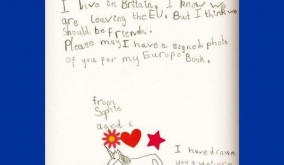 I live in Britain. I know we
are leaving the EU. But I think we
should be friends.
Please may I have a signed photo
of you for my Europe
Book.
from
Sophie
aged 6
I have drawn
you a